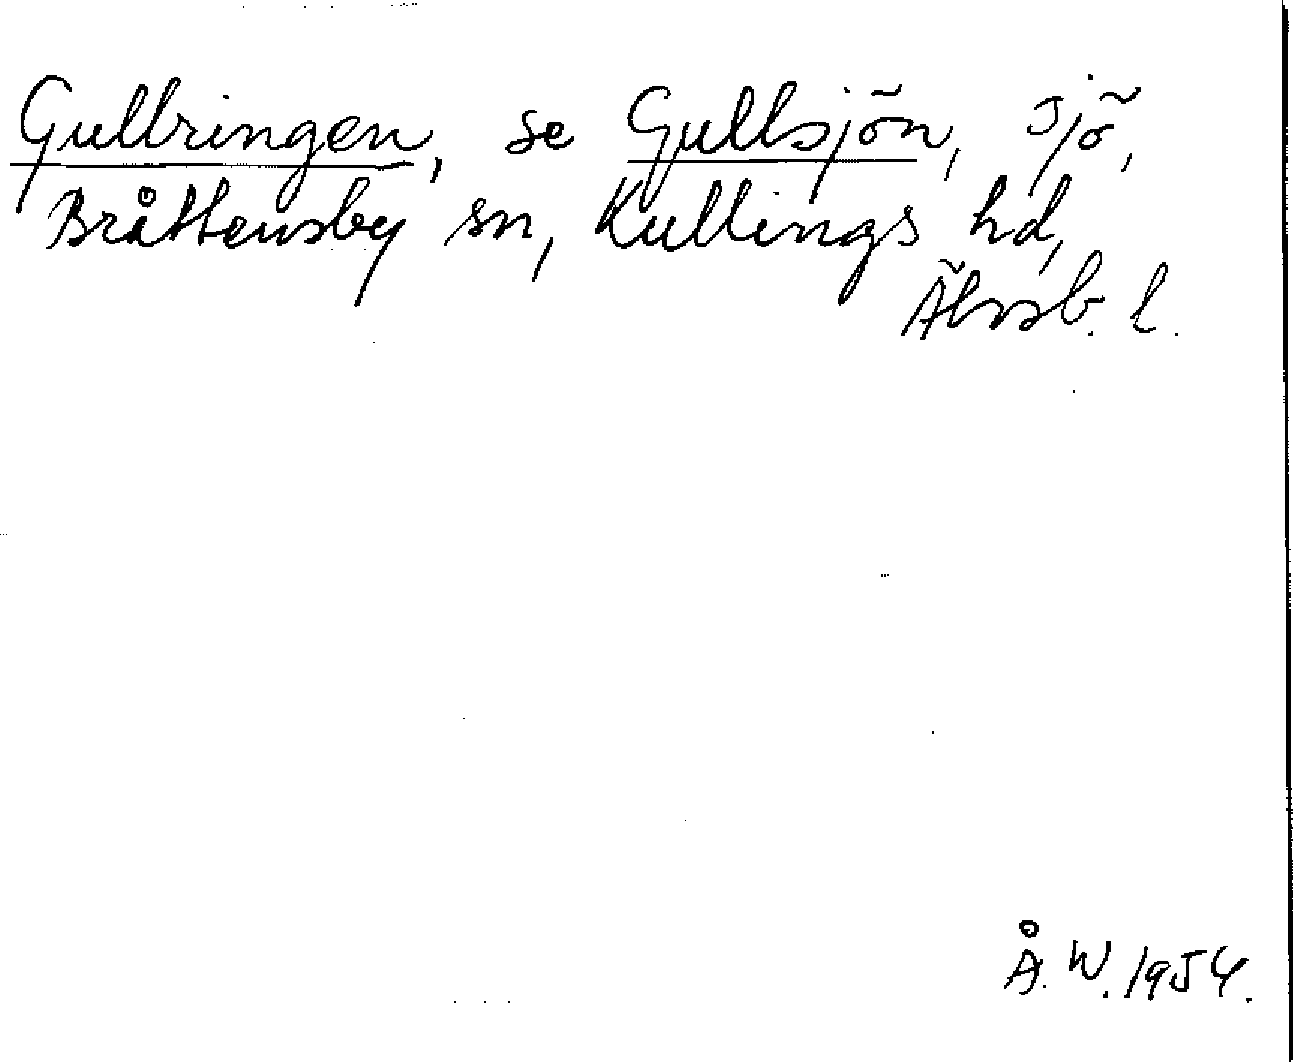 Gullringen, se Gullsjön, sjö,
Bråttensby sn, Kullings hd,
Älvsb. l.
Å. W. 1954.